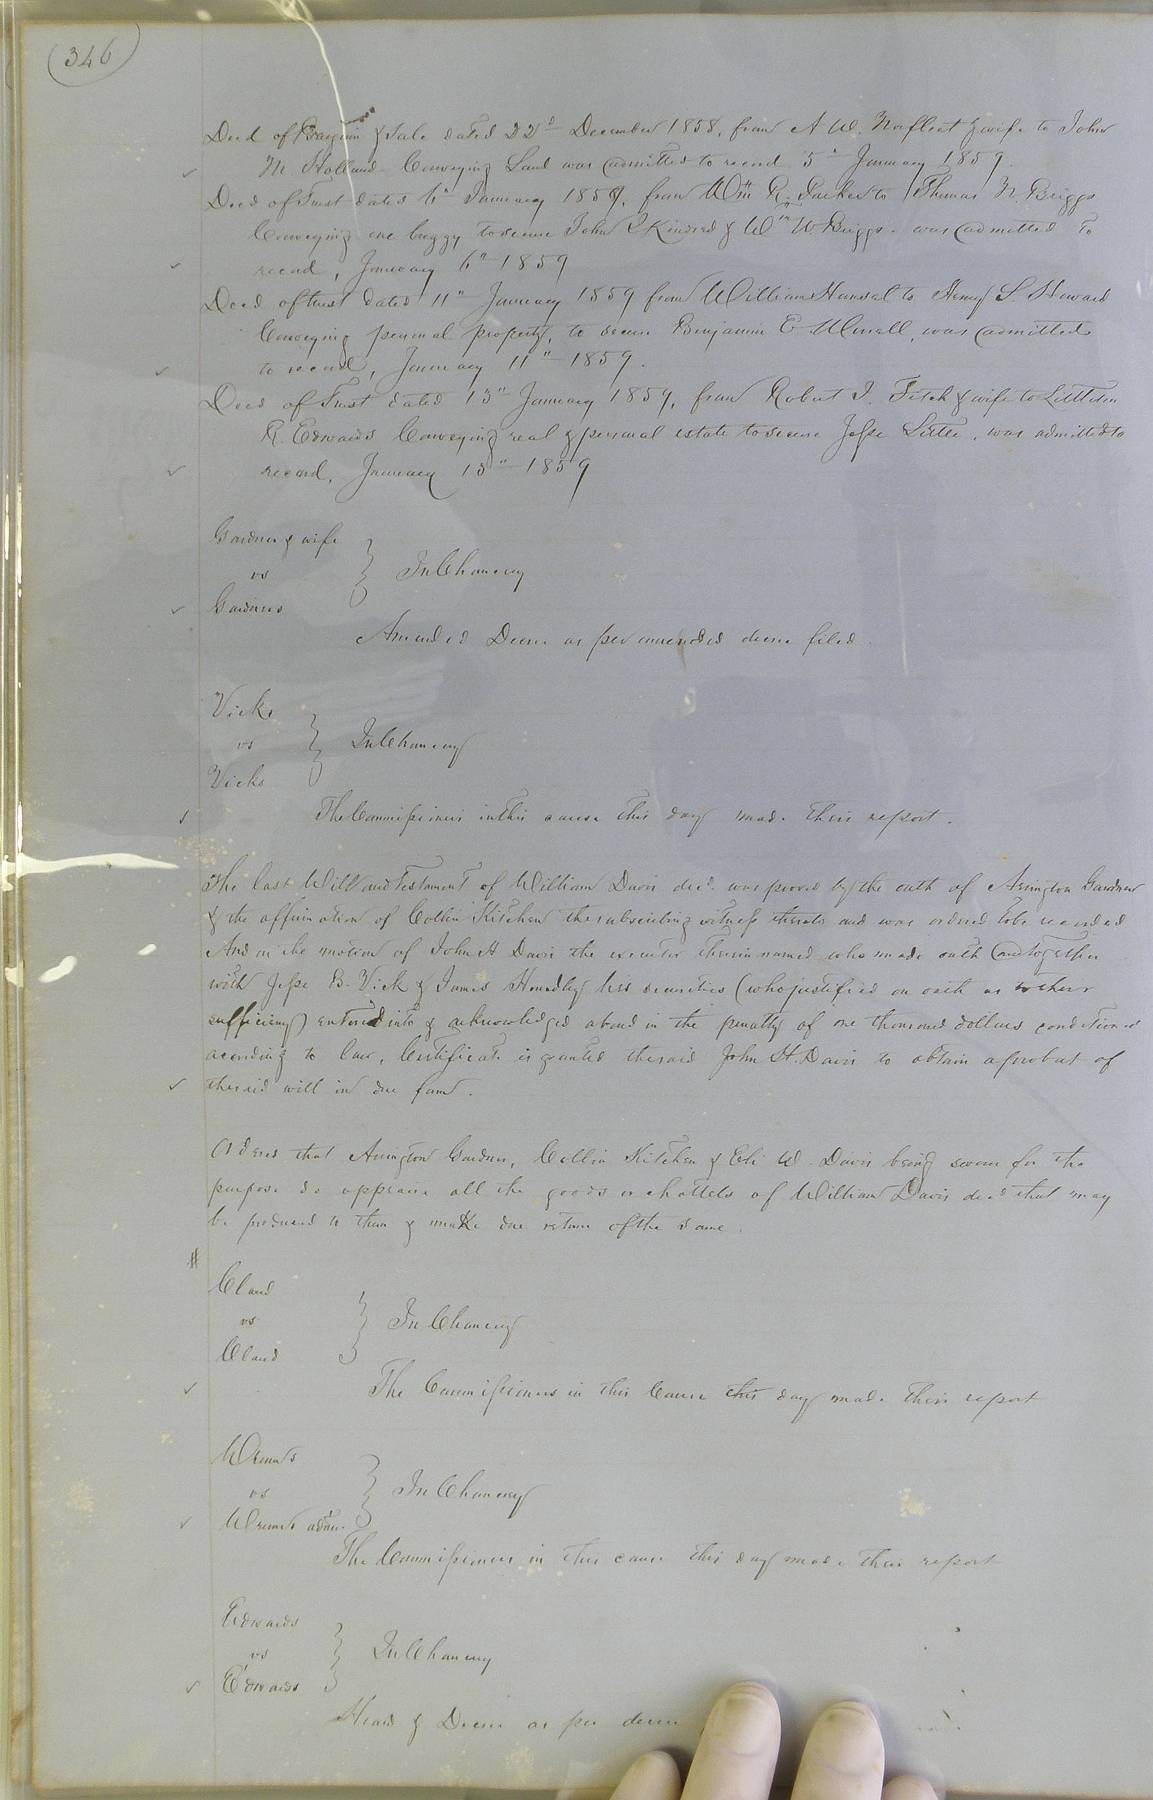 (346)
Deed of Bargain & Sale dated 22d December 1858, from A W. Norfleet & wife to John
M Holland Conveying Land was admitted to record 5th January 1859.
Deed of Trust dated 6th January 1859, from Wm R. Parker to Thomas N. Briggs
Conveying one buggy to secure John Kindred & Wm W. Briggs. was admitted to
record, January 6th 1859
Deed of trust dated 11th January 1859 from William to Henry S. Steward
Conveying personal property, to secure Benjamin E was admitted
to record, January 11th 1859.
Deed of Trust dated 13th January 1859, from Robert & wife to Littleton
R. Edwards Conveying real & personal estate to secure Jesse Little, was admitted to
record, January 13th 1859
Gardner & wife
vs
In Chancery
Gardners
Amended Decree as per amended decree filed.
Vicks
vs
In Chancery
Vicks
The Commissioners in this cause this day made their report.
The last Will and Testament of William Davis decd. was proved by the oath of Arington Gardner
& the affirmation of Collin Kitchen the subscribing witness thereto and was ordered to be recorded
And on the motion of John H Davis the executor therein named who made oath and together
with Jesse B. Vick & James Handley his securities (who justified on oath as to their
sufficiency) entered into & acknowledged a bond in the penalty of one thousand dollars conditioned
according to law, Certificate is granted the said John H. Davis to obtain a probat of
the said will in due form.
Ordered that Arington Gardner, Collin Kitchen & Eli W. Davis being sworn for the
purpose do appraise all the goods or chattels of William Davis decd that may
be produced to them & make due return of the same.
#
Claud
vs
In Chancery
Claud
The Commissioners in this Cause this day made their report
vs
In Chancery
The Commissioners in this cause this day made their report
Edwards
vs
In Chancery
Edwards
Heard & Decree as per decree